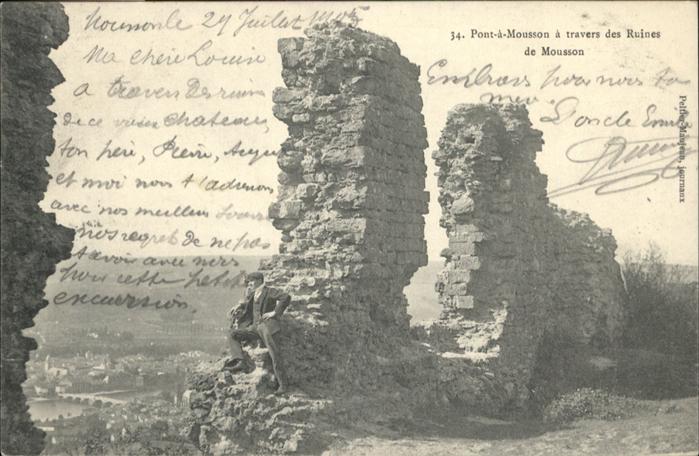 Mousson le 29 Juillet 1905
Ma chère Louise
a travers des ruines
de ce vieux chateau,
ton père, Pierre,
et moi nous t'adressons
avec nos meilleurs
nos regret de ne pas
t'avoir avec nous
pour cette petite
excursion.
34. Pont-à-Mousson à travers des Ruines
de Mousson
Embrasse pour nous ta
Ton oncle Emile
Peiffer-Maujean, journaux